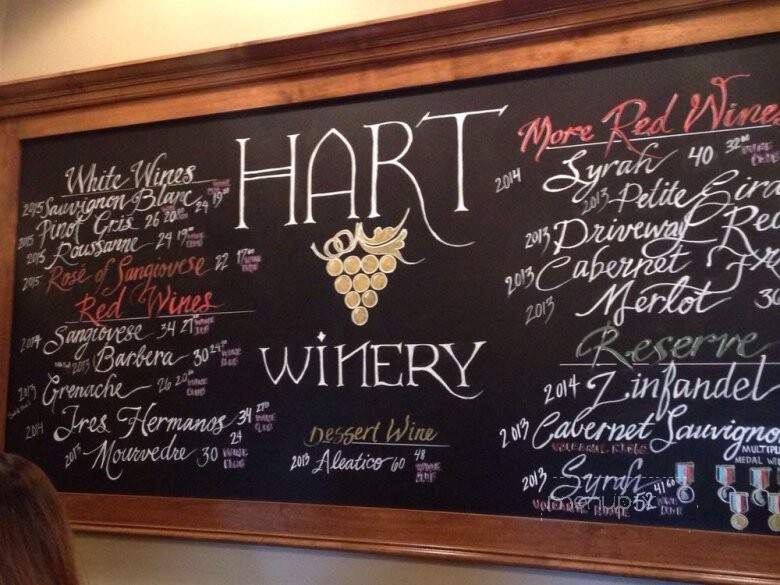 White Wines
2015 Sauvignon Blanc 24 19
2015 Pinot Gris 26 20
2015 Roussanne 24 19
2015 Rose of Sangiovese 22 17
Red Wines
2014 Sangiovese 34 27
2013 Barbera 30 24
2013 Grenache 26 20
2014 Tres Hermanos 34 27
2013 Mourvedre 30 24
WINE CLUB
HART
WINERY
Dessert Wine
2013 Aleatico 60 48
WINE CLUB
More Red Wines
2014 Syrah 40 32
2013 Petite Sira
2013 Driveway Re
2013 Cabernet Fr
2013 Merlot
Reserve
2014 Zinfandel
2013 Cabernet Sauvigno
VOLCANIC RIDGE
MULTIPL
MEDAL WI
2013 Syrah 52 41
VOLCANIC RIDGE
menupix